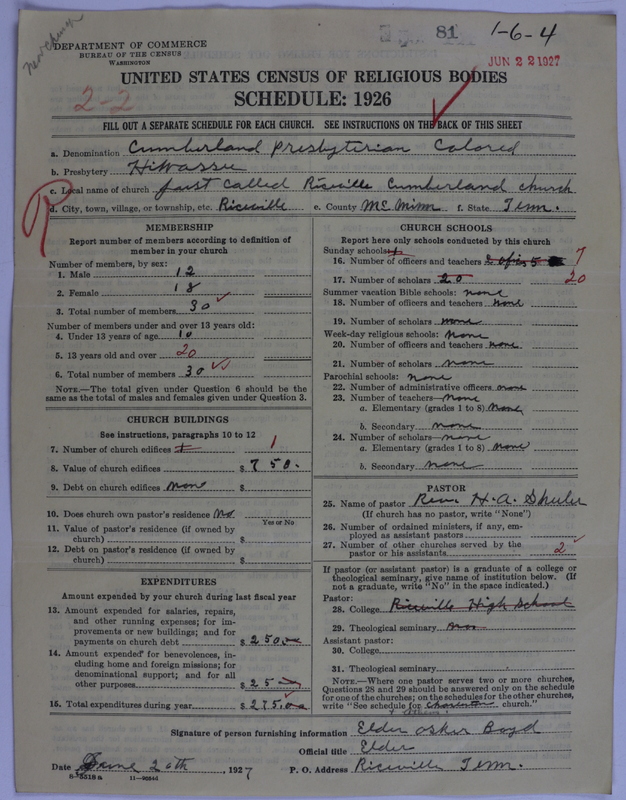 new church
81
1-6-4
JUN 22 1927
DEPARTMENT OF COMMERCE
BUREAU OF THE CENSUS
WASHINGTON
UNITED STATES CENSUS OF RELIGIOUS BODIES
SCHEDULE: 1926
2-2
FILL OUT A SEPARATE SCHEDULE FOR EACH CHURCH. SEE INSTRUCTIONS ON THE BACK OF THIS SHEET
a. Denomination Cumberland Presbyterian Colored
b. Presbytery Hiwassee
c. Local name of church just called Riceville Cumberland church
d. City, town, village, or township, etc. Riceville e. County McMinn f. State Tenn.
R
MEMBERSHIP
Report number of members according to definition of
member in your church
Number of members, by sex:
1. Male 12
2. Female 18
3. Total number of members 30
Number of members under and over 13 years old:
4. Under 13 years of age 10
5. 13 years old and over 20
6. Total number of members 30
NOTE.—The total given under Question 6 should be the
same as the total of males and females given under Question 3.
CHURCH BUILDINGS
See instructions, paragraphs 10 to 12
7. Number of church edifices 1 1
8. Value of church edifices $ 750.
9. Debt on church edifices none $
10. Does church own pastor's residence No
Yes or No
11. Value of pastor's residence (if owned by
church) $
12. Debt on pastor's residence (if owned by
church) $
EXPENDITURES
Amount expended by your church during last fiscal year
13. Amount expended for salaries, repairs,
and other running expenses; for im-
provements or new buildings; and for
payments on church debt $ 250.00
14. Amount expended for benevolences, in-
cluding home and foreign missions; for
denominational support; and for all
other purposes $ 25
15. Total expenditures during year $ 275.00
CHURCH SCHOOLS
Report here only schools conducted by this church
Sunday schools:
16. Number of officers and teachers 7
17. Number of scholars 20 20
Summer vacation Bible schools: none
18. Number of officers and teachers none
19. Number of scholars none
Week-day religious schools: none
20. Number of officers and teachers none
21. Number of scholars none
Parochial schools: none
22. Number of administrative officers none
23. Number of teachers— none
a. Elementary (grades 1 to 8) none
b. Secondary none
24. Number of scholars— none
a. Elementary (grades 1 to 8) none
b. Secondary none
PASTOR
25. Name of pastor Rev. H. A.
(If church has no pastor, write "None")
26. Number of ordained ministers, if any, em-
ployed as assistant pastors
27. Number of other churches served by the
pastor or his assistants 2
If pastor (or assistant pastor) is a graduate of a college or
theological seminary, give name of institution below. (If
not a graduate, write "No" in the space indicated.)
Pastor:
28. College Riceville High School
29. Theological seminary
Assistant pastor:
30. College
31. Theological seminary
NOTE.—Where one pastor serves two or more churches,
Questions 28 and 29 should be answered only on the schedule
for one of the churches; on the schedules for the other churches,
write "See schedule for Charleston church."
& Athens
Signature of person furnishing information Elder Osker Boyd
Official title Elder
Date June 20th, 1927 P. O. Address Riceville Tenn.
6-5318a 11-9554d